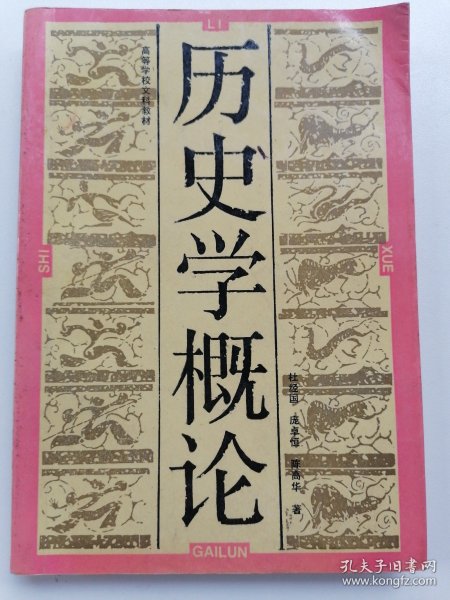 LI
高等学校文科教材
历史学概论
SHI
XUE
杜经国 庞卓恒 陈高华 著
GAILUN
孔夫子旧书网
www.kongfz.com